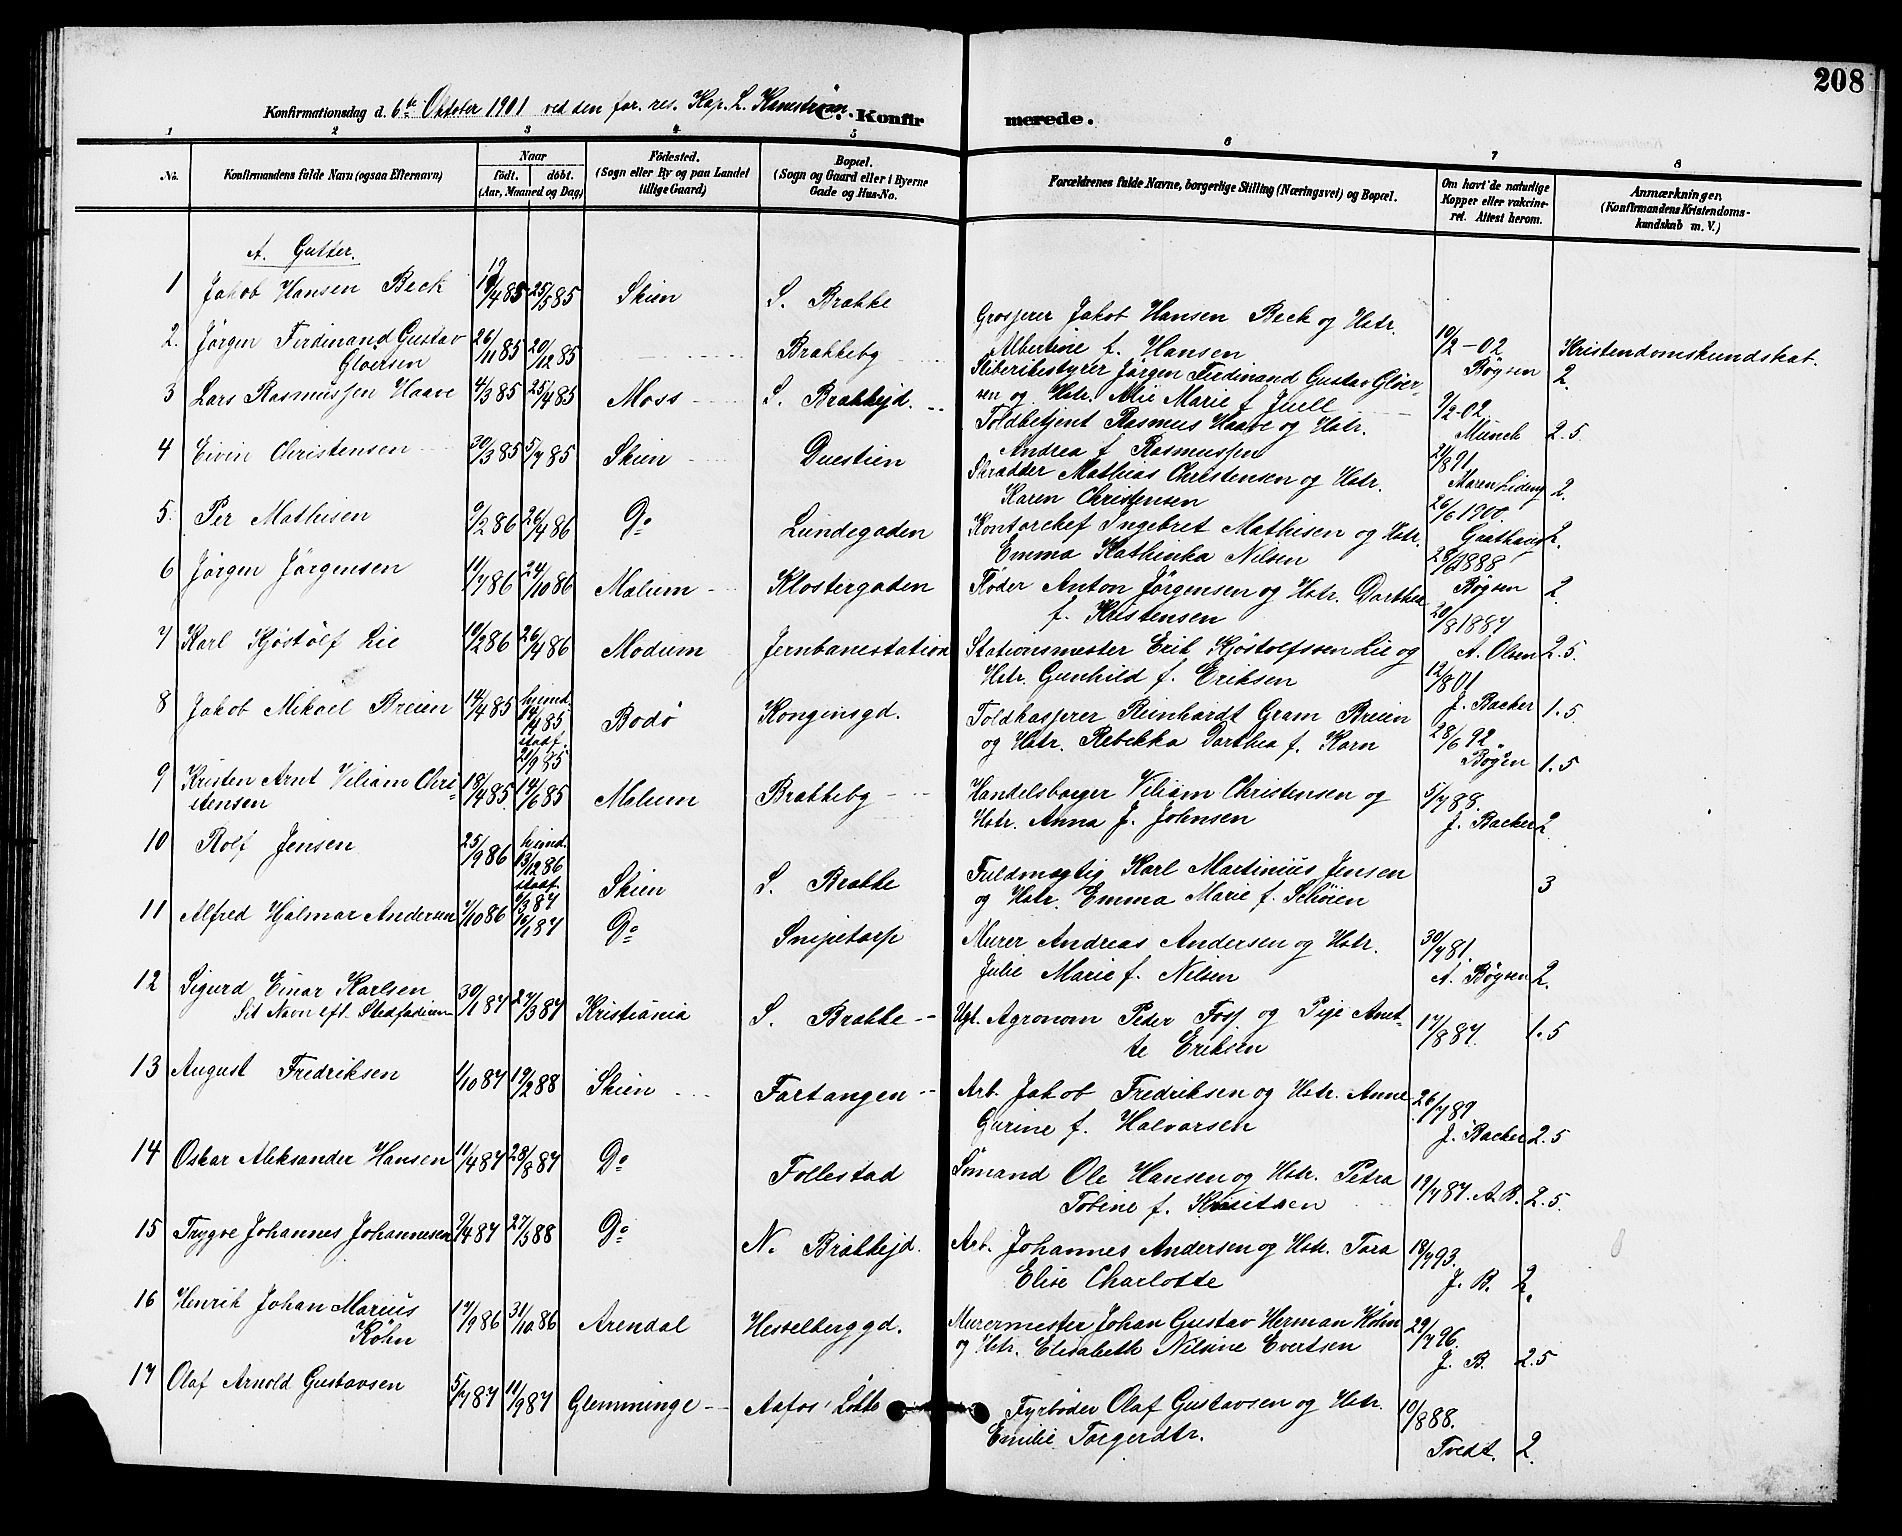 208
Konfirmationsdag d. 6te Oktober 1901 ved den for. res. Kap. L. C. Konfir merede.
1 2 3 4 5 6 7 8
No.
Konfirmandens fulde Navn (ogsaa Efternavn)
Naar
födt. döbt.
(Aar, Maaned og Dag)
Födested.
(Sogn eller By og paa Landet
tillige Gaard)
Bopæl.
(Sogn og Gaard eller i Byerne
Gade og Hus-No.
Forældrenes fulde Navne, borgerlige Stilling (Næringsvei) og Bopæl.
Om havt de naturlige
Kopper eller vakcine-
ret. Attest herom.
Anmærkninger,
(Konfirmandens Kristendoms-
kundskab m. V.)
A. Gutter.
1 Jakob Hansen Beck 19/4 85 25/5 85 Skien S. Brække Grosserer Jakob Hansen Beck og Hstr.
Albertine f. Hansen 10/2-02 Bøgsen Kristendomskundskab. 2.
2. Jørgen Ferdinand Gustav
Gløersen 26/11 85 20/12 85 Brækkeby Sliberibestyrer Jørgen Ferdinand Gustav Gløer-
sen og Hstr. Alie Marie f. Juell 9/2-02 Münch 2.5
3 Lars Rasmussen Haave 4/3 85 25/4 85 Moss S. Brækkejd. Toldbetjent Rasmus Haave og Hstr.
Andrea f. Rasmussen 21/8 91 Maren 2.
4 Eivin Christensen 30/3 85 5/7 85 Skien Duestien Skrædder Mathias Christensen og Hstr.
Karen Christensen 26/6 1900. Gaathaug 2.
5. Per Mathisen 9/2 86 26/4 86 Do Lundegaden Kontorchef Ingebret Mathisen og Hstr.
Emma Kathinka Nilsen 1888 Bøgsen 2.
6 Jørgen Jørgensen 11/7 86 24/10 86 Mælum Klostergaden Fløder Anton Jørgensen og Hstr. Dorthea
f. Kristensen 20/8 1887 A. Olsen 2.5.
7 Karl Kjøstølf Lie 10/2 86 26/4 86 Modum Jernbanestation Stationsmester Erik Kjøstolfssen Lie og
Hstr. Gunhild f. Eriksen 12/8 01 J. Backer 1.5
8 Jakob Mikael Breien 14/4 85 hjemd.
14/4 85
stadf.
21/9 85 Bodø Konginsgd. Toldkasserer Reinhardt Gram Breien
og Hstr. Rebekka Dorthea f. Korn 28/6 92 Bøgen 1.5
9 Kristen Arnt Viliam Chri-
stensen 18/4 85 14/6 85 Mælum Brækkeby Handelsborger Viliam Christensen og
Hstr. Anna J. Johnsen 5/7 88. J. Backer 2
10 Rolf Jensen 25/9 86 hjemd.
13/12 86
stadf.
9/3 87 Skien S. Brække Fuldmægtig Karl Martinius Jensen
og Hstr. Emma Marie f. Schøien 3
11 Alfred Hjalmar Andersen 7/10 86 1 87 Do Snipetorp Murer Andreas Andersen og Hstr.
Julie Marie f. Nilsen 30/7 81. A. Bøgsen 2.
12 Sigurd Einar Karlsen
Sit Navn eft. Stedfaderen 30/1 87 27/3 87 Kristiania S. Brække Ugt. Agronom Peder Foss og Pige Anet-
te Eriksen 17/8 87. 1.5
13 August Fredriksen 1/10 87 19/2 88 Skien Fartangen Arb. Jakob Fredriksen og Hstr. Anne
Gurine f. Halvorsen 26/7 89 J. Backer 2.5
14 Oskar Aleksander Hansen 11/4 87 28/8 87 Do Follestad Sømand Ole Hansen og Hstr. Petra
Tobine f. Knutsen 19/7 87. A. B. 2.5.
15 Trygve Johannes Johannesen 9/4 87 27/3 88 Do N. Brækkejd. Arb. Johannes Andersen og Hstr. Tora
Elise Charlotte 18/7 93. J. B. 2.
16 Henrik Johan Marius
Köhn 17/9 86 31/10 86 Arendal Hesselberggd. Murermester Johan Gustav Herman Köhn
og Hstr. Elisabeth Nilsine Evertsen 29/7 96. J. B. 2.5
17 Olaf Arnold Gustavsen 5/7 87 11/9 87 Glemminge Aafos' Løkke Fyrbøder Olaf Gustavsen og Hstr.
Emilie Torgerdtr. 10/8 88. Tvedt. 2.